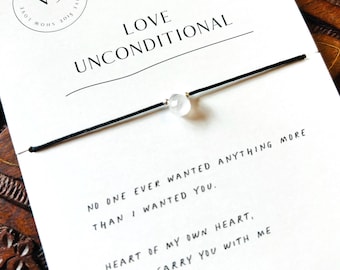 LOVE
UNCONDITIONAL
NO ONE EVER WANTED ANYTHING MORE
THAN I WANTED YOU.
HEART OF MY OWN HEART,
CARRY YOU WITH ME